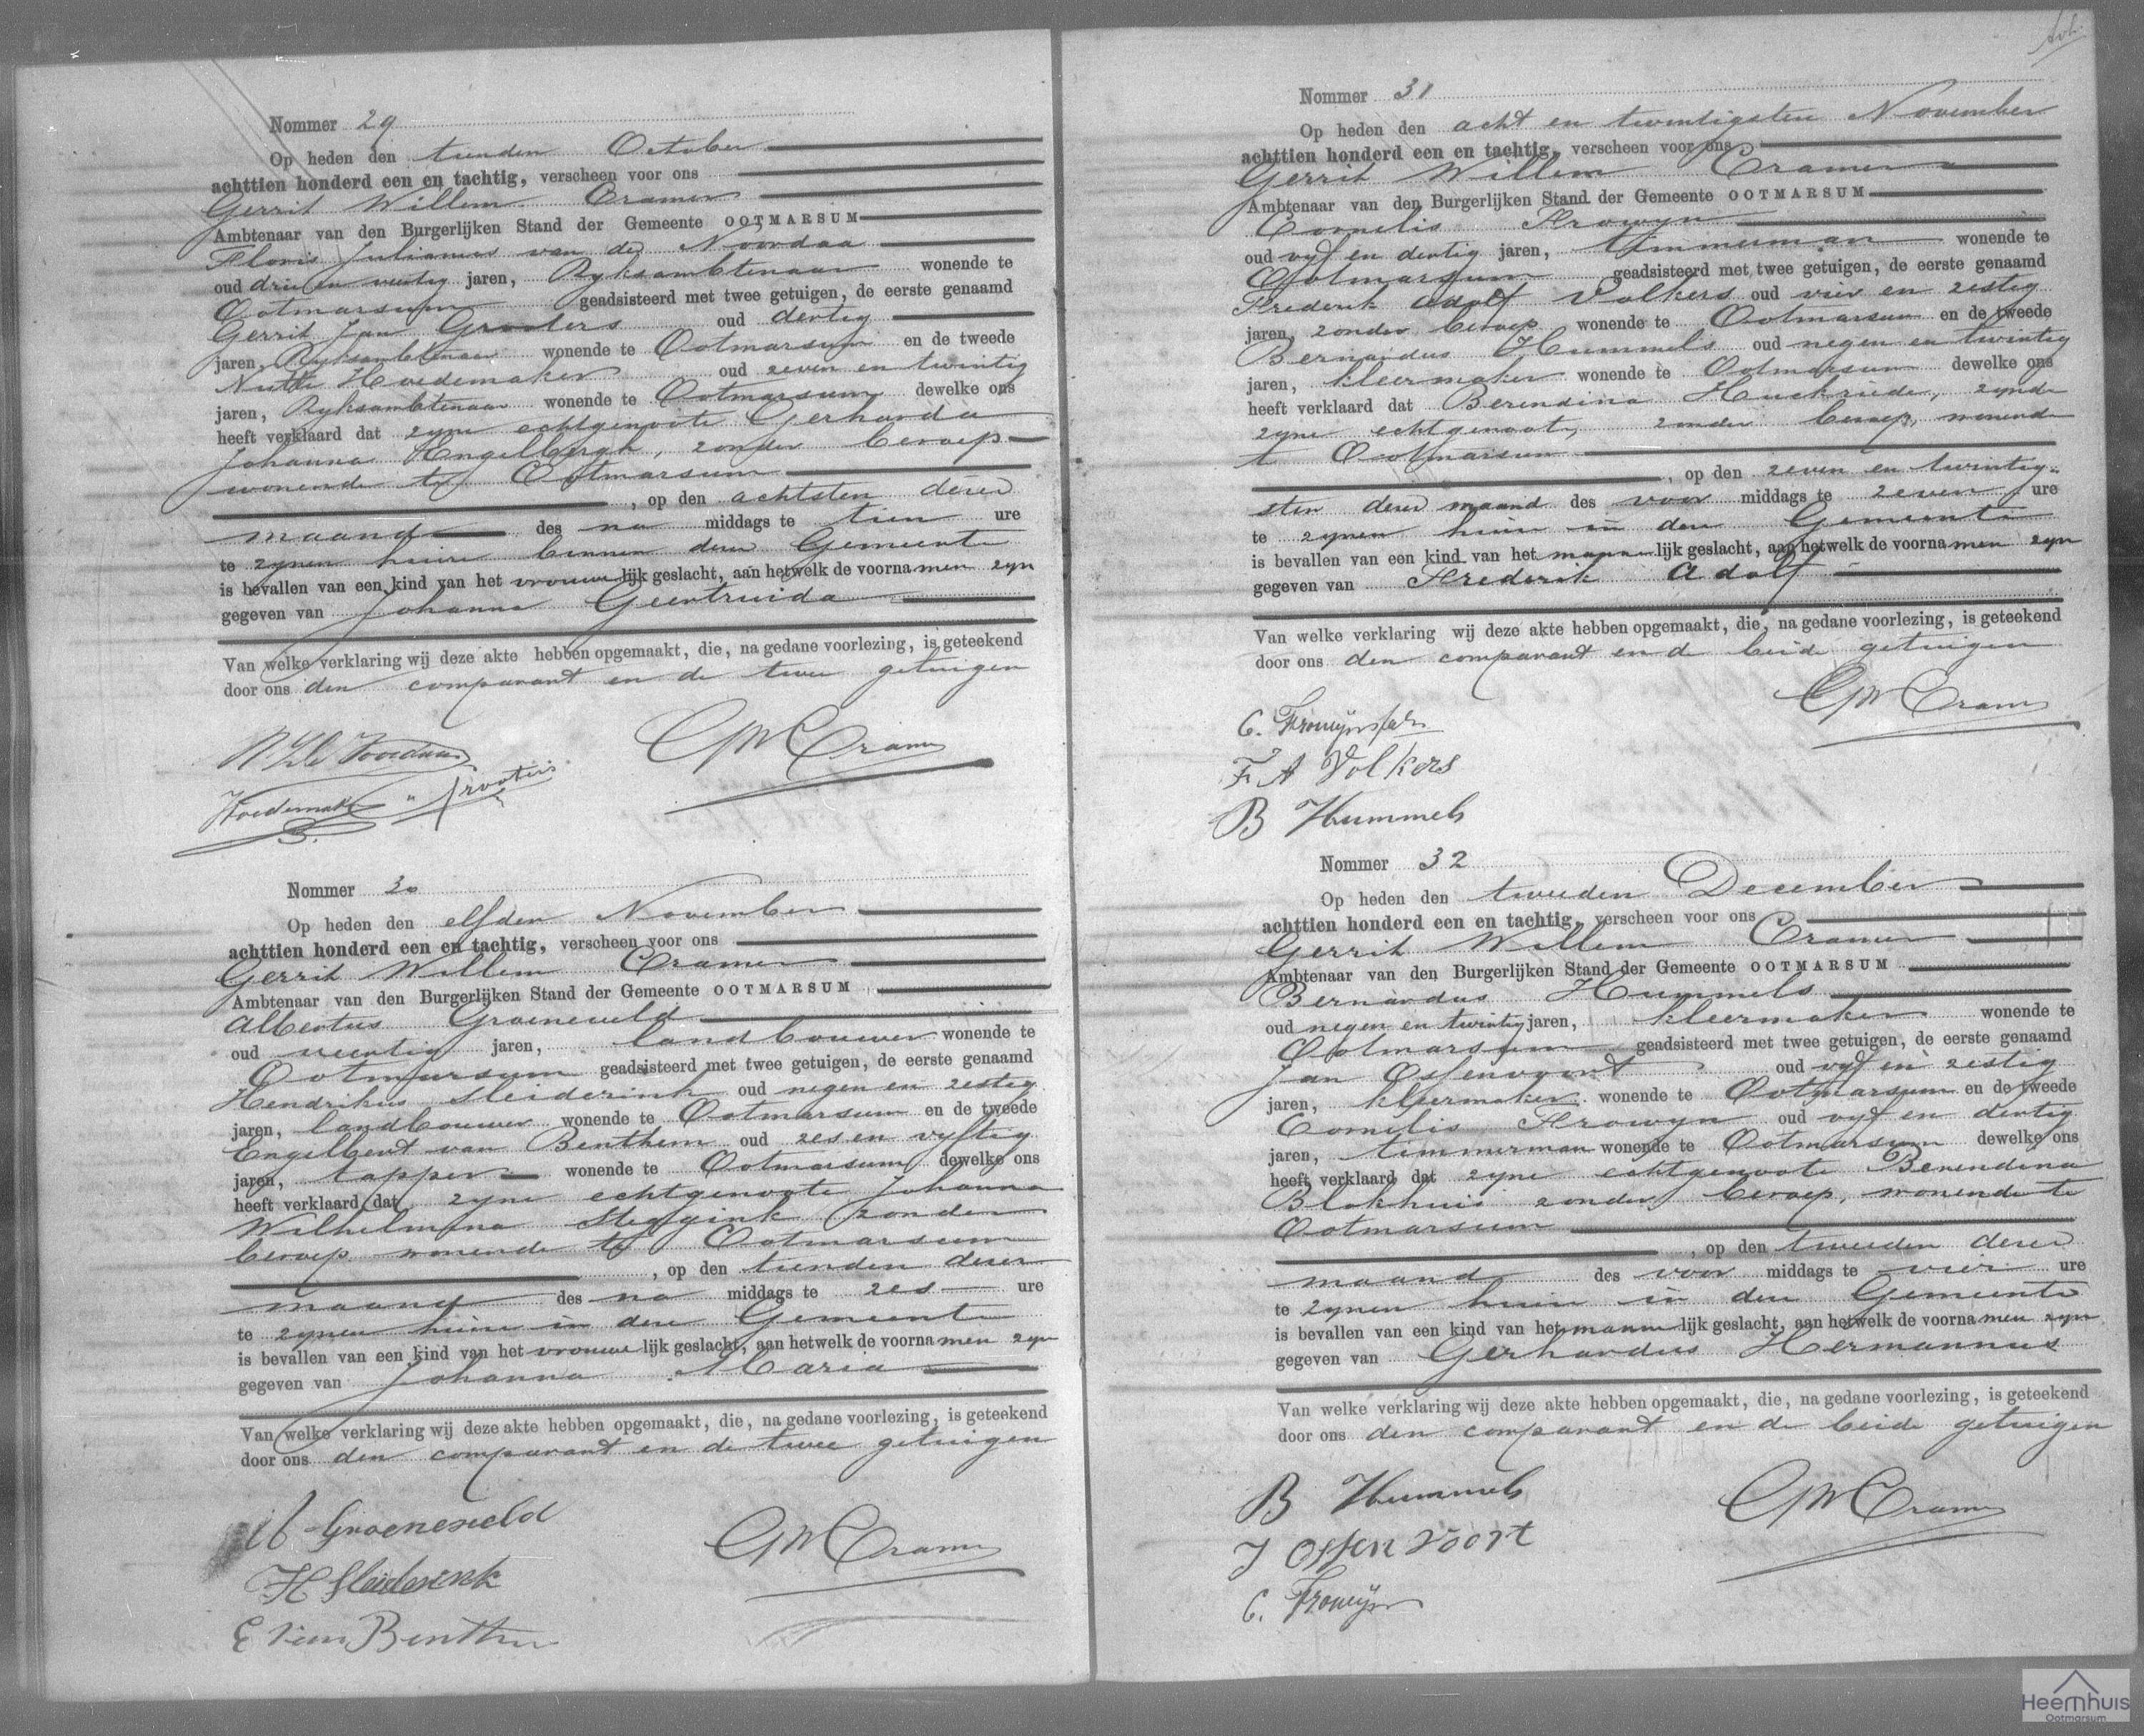 Nommer 29
Op heden den tienden October
achttien honderd een en tachtig, verscheen voor ons
Gerrit Willem Cramer
Ambtenaar van den Burgerlijken Stand der Gemeente OOTMARSUM
Floris Julianus van der Noordaa
oud drie en veertig jaren, Ryksambtenaar wonende te
Ootmarsum geadsisteerd met twee getuigen, de eerste genaamd
Gerrit Jan Grooters oud dertig
jaren, Ryksambtenaar wonende te Ootmarsum en de tweede
Hoedemaker oud zeven en twintig
jaren, Ryksambtenaar wonende te Ootmarsum dewelke ons
heeft verklaard dat zyne echtgenoote Gerharda
Johanna Engelbergh, zonder beroep
wonende te Ootmarsum
, op den achtsten dezer
maand des na middags te tien ure
te zynen huize binnen deze Gemeente
is bevallen van een kind van het vrouwelijk geslacht, aan hetwelk de voornamen zyn
gegeven van Johanna Geertruida
Van welke verklaring wij deze akte hebben opgemaakt, die, na gedane voorlezing, is geteekend
door ons den comparant en de twee getuigen
Noordaa GWCramer
Hoedemaker Grooters
Nommer 30
Op heden den elfden November
achttien honderd een en tachtig, verscheen voor ons
Gerrit Willem Cramer
Ambtenaar van den Burgerlijken Stand der Gemeente OOTMARSUM
Albertus Groeneveld
oud veertig jaren, landbouwer wonende te
Ootmarsum geadsisteerd met twee getuigen, de eerste genaamd
Hendrikus Sleiderink oud negen en zestig
jaren, landbouwer wonende te Ootmarsum en de tweede
Engelbert van Benthem oud zes en vyftig
jaren, tapper wonende te Ootmarsum dewelke ons
heeft verklaard dat zyne echtgenoote Johanna
Wilhelmina Steggink zonder
beroep wonende te Ootmarsum
, op den tienden dezer
maand des na middags te zes ure
te zynen huize in deze Gemeente
is bevallen van een kind van het vrouwelijk geslacht, aan hetwelk de voornamen zyn
gegeven van Johanna Maria
Van welke verklaring wij deze akte hebben opgemaakt, die, na gedane voorlezing, is geteekend
door ons den comparant en de twee getuigen
A Groeneveld GWCramer
H Sleiderink
E van Benthem
Nommer 31
Op heden den acht en twintigsten November
achttien honderd een en tachtig, verscheen voor ons
Gerrit Willem Cramer
Ambtenaar van den Burgerlijken Stand der Gemeente OOTMARSUM
Cornelis Frowyn
oud vyf en dertig jaren, timmerman wonende te
Ootmarsum geadsisteerd met twee getuigen, de eerste genaamd
Frederik Adolf Volkers oud vier en zestig
jaren, zonder beroep wonende te Ootmarsum en de tweede
Bernardus Hummels oud negen en twintig
jaren, kleermaker wonende te Ootmarsum dewelke ons
heeft verklaard dat Berendina Huckriede, zynde
zyne echtgenoot, zonder beroep, wonende
te Ootmarsum
, op den zeven en twintig-
sten dezer maand des voor middags te zeven ure
te zynen huize in deze Gemeente
is bevallen van een kind van het mannelijk geslacht, aan hetwelk de voornamen zyn
gegeven van Frederik Adolf
Van welke verklaring wij deze akte hebben opgemaakt, die, na gedane voorlezing, is geteekend
door ons den comparant en d beide getuigen
C. Frowijn GWCramer
F A Volkers
B Hummels
Nommer 32
Op heden den tweeden December
achttien honderd een en tachtig, verscheen voor ons
Gerrit Willem Cramer
Ambtenaar van den Burgerlijken Stand der Gemeente OOTMARSUM
Bernardus Hummels
oud negen en twintig jaren, kleermaker wonende te
Ootmarsum geadsisteerd met twee getuigen, de eerste genaamd
Jan Ossenvoort oud vyf en zestig
jaren, kleermaker wonende te Ootmarsum en de tweede
Cornelis Frowyn oud vyf en dertig
jaren, timmerman wonende te Ootmarsum dewelke ons
heeft verklaard dat zyne echtgenoote Berendina
Blokhuis zonder beroep, wonende te
Ootmarsum
, op den tweeden dezer
maand des voor middags te vier ure
te zynen huize in deze Gemeente
is bevallen van een kind van het mannelijk geslacht, aan hetwelk de voornamen zyn
gegeven van Gerhardus Hermannus
Van welke verklaring wij deze akte hebben opgemaakt, die, na gedane voorlezing, is geteekend
door ons den comparant en de beide getuigen
B Hummels GWCramer
J Ossenvoort
C. Frowijn
Heemhuis
Ootmarsum